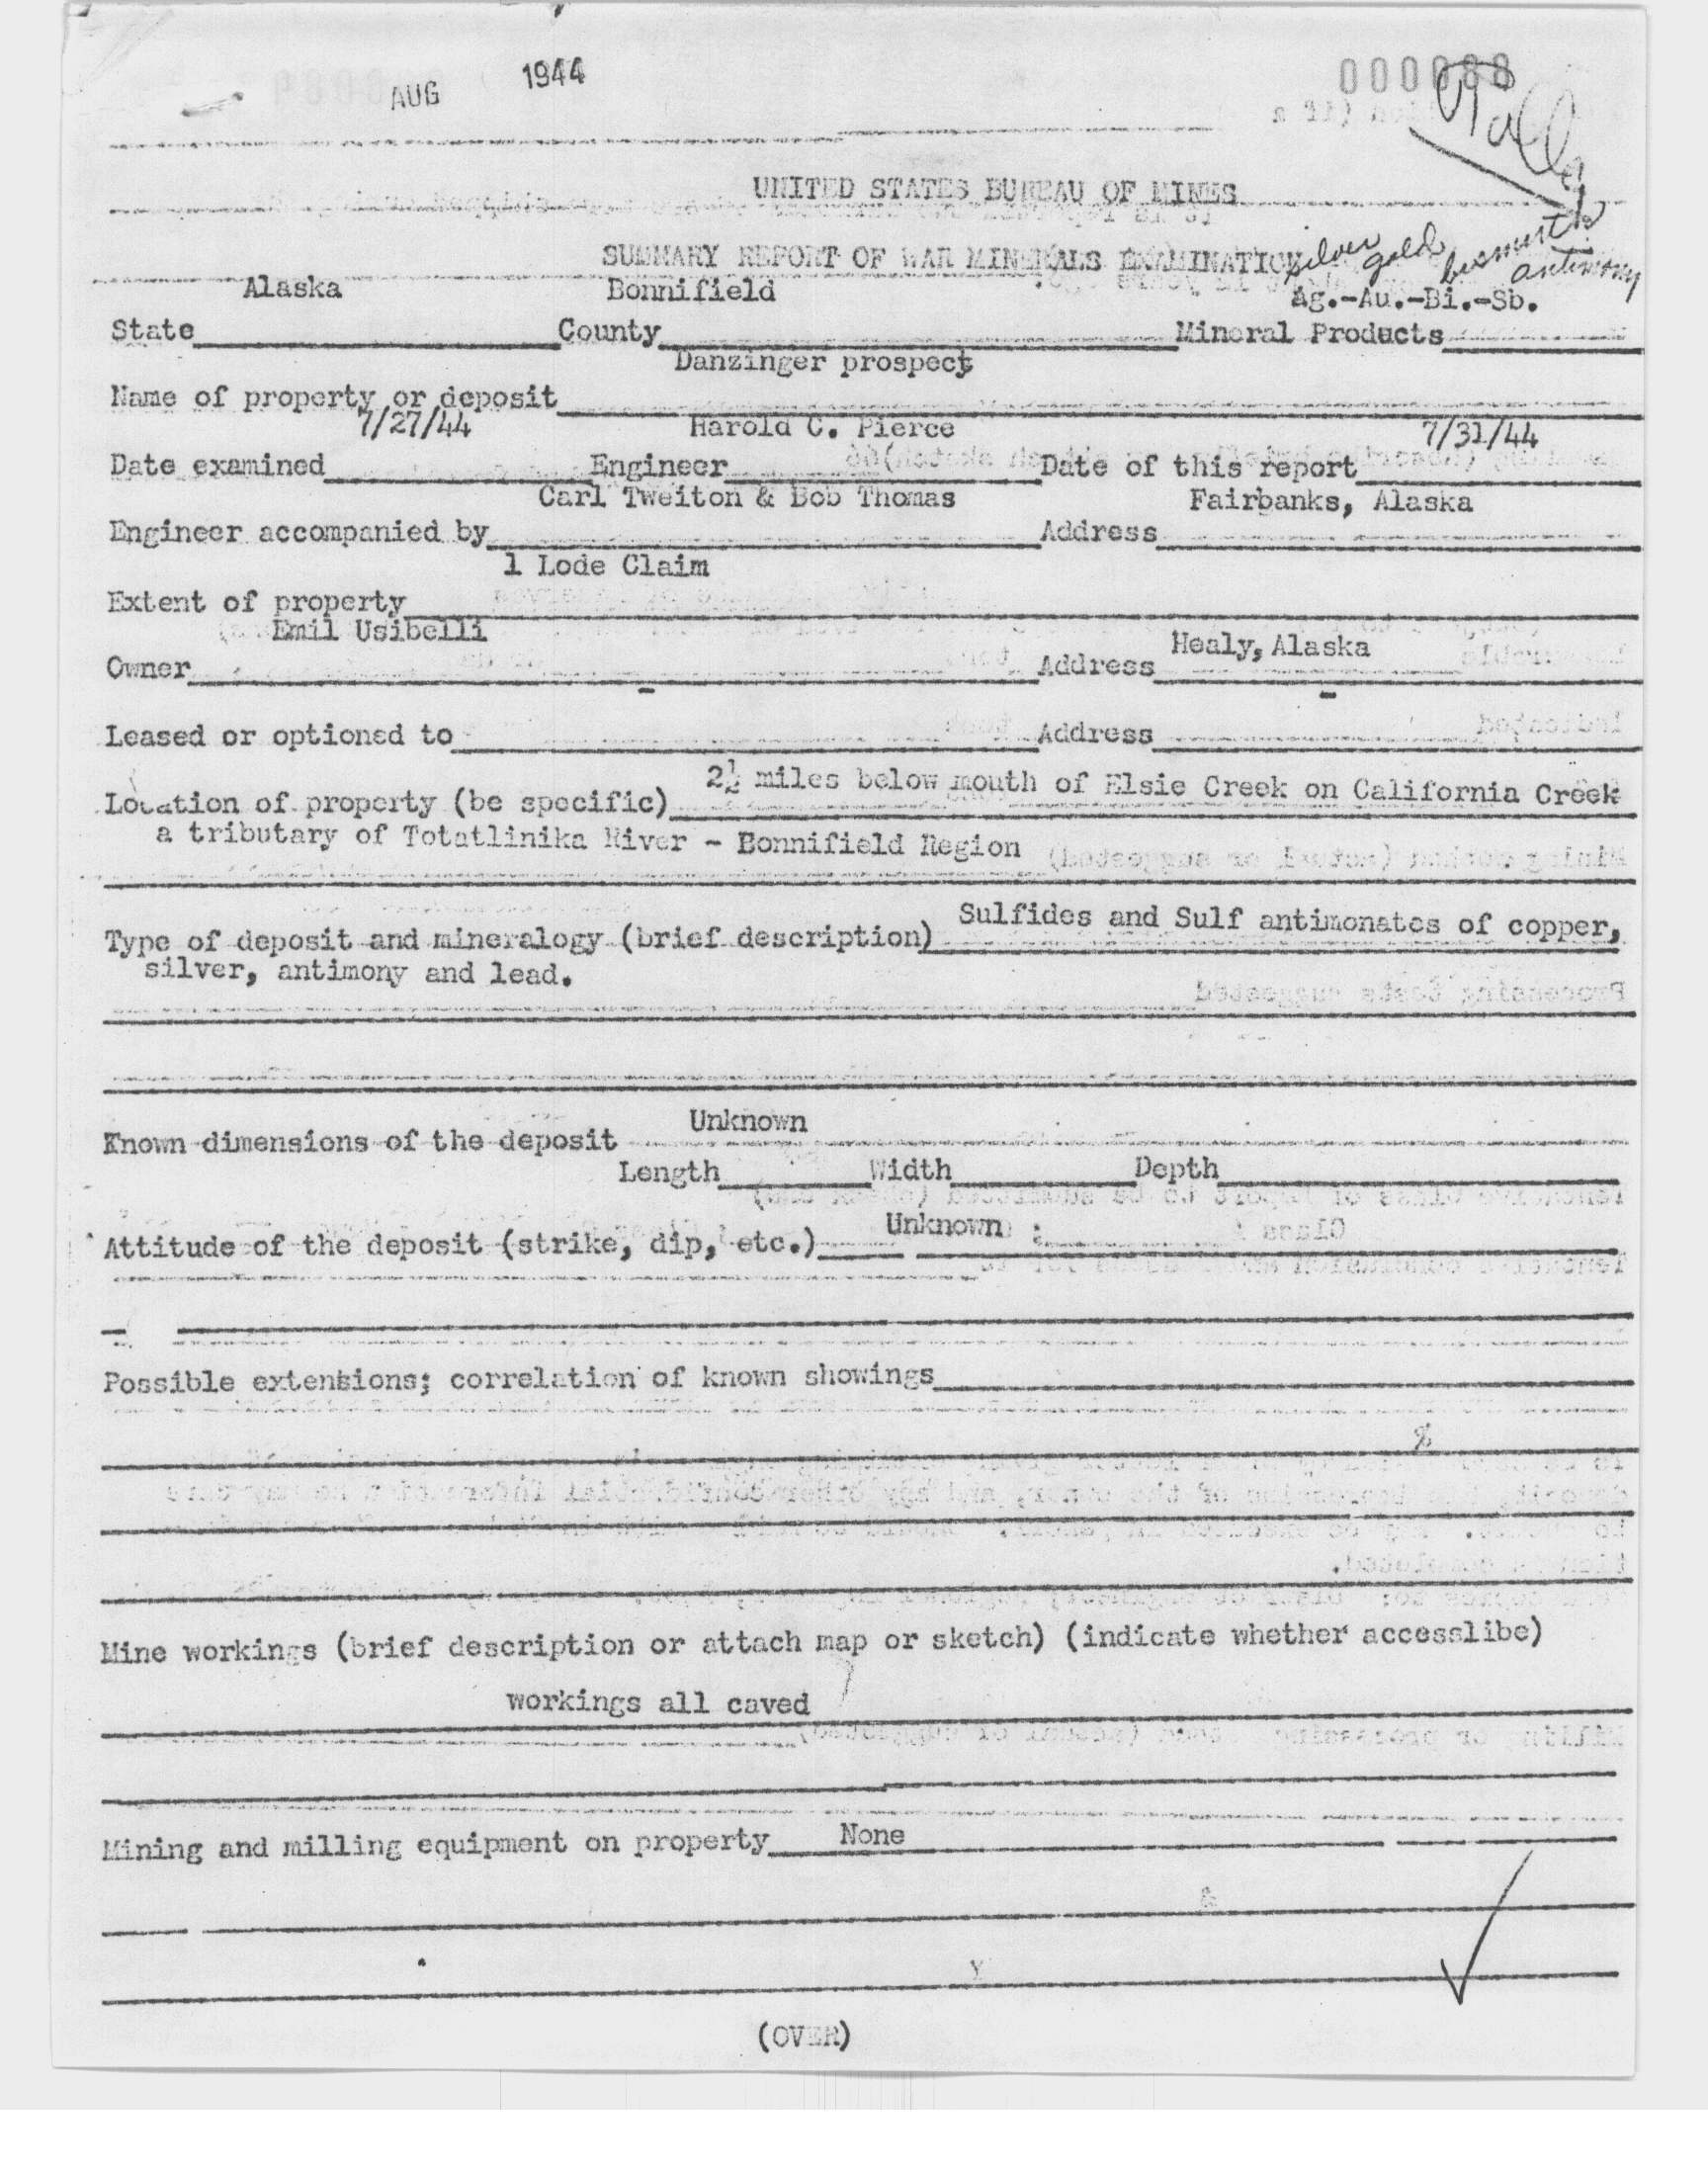 AUG 1944
000088
UNITED STATES BUREAU OF MINES
SUMMARY REPORT OF WAR MINERALS EXAMINATION
silver gold bismuth antimony
Alaska Bonnifield Ag.-Au.-Bi.-Sb.
State County Mineral Products
Danzinger prospect
Name of property or deposit
7/27/44 Harold C. Pierce 7/31/44
Date examined Engineer Date of this report
Carl Tweiton & Bob Thomas Fairbanks, Alaska
Engineer accompanied by Address
1 Lode Claim
Extent of property
Emil Usibelli Healy, Alaska
Owner Address
- -
Leased or optioned to Address
2½ miles below mouth of Elsie Creek on California Creek
Location of property (be specific)
a tributary of Totatlinika River - Bonnifield Region
Sulfides and Sulf antimonates of copper,
Type of deposit and mineralogy (brief description)
silver, antimony and lead.
Unknown
Known dimensions of the deposit
Length Width Depth
Unknown
Attitude of the deposit (strike, dip, etc.)
Possible extensions; correlation of known showings
Mine workings (brief description or attach map or sketch) (indicate whether accesslibe)
workings all caved
Mining and milling equipment on property None
(OVER)